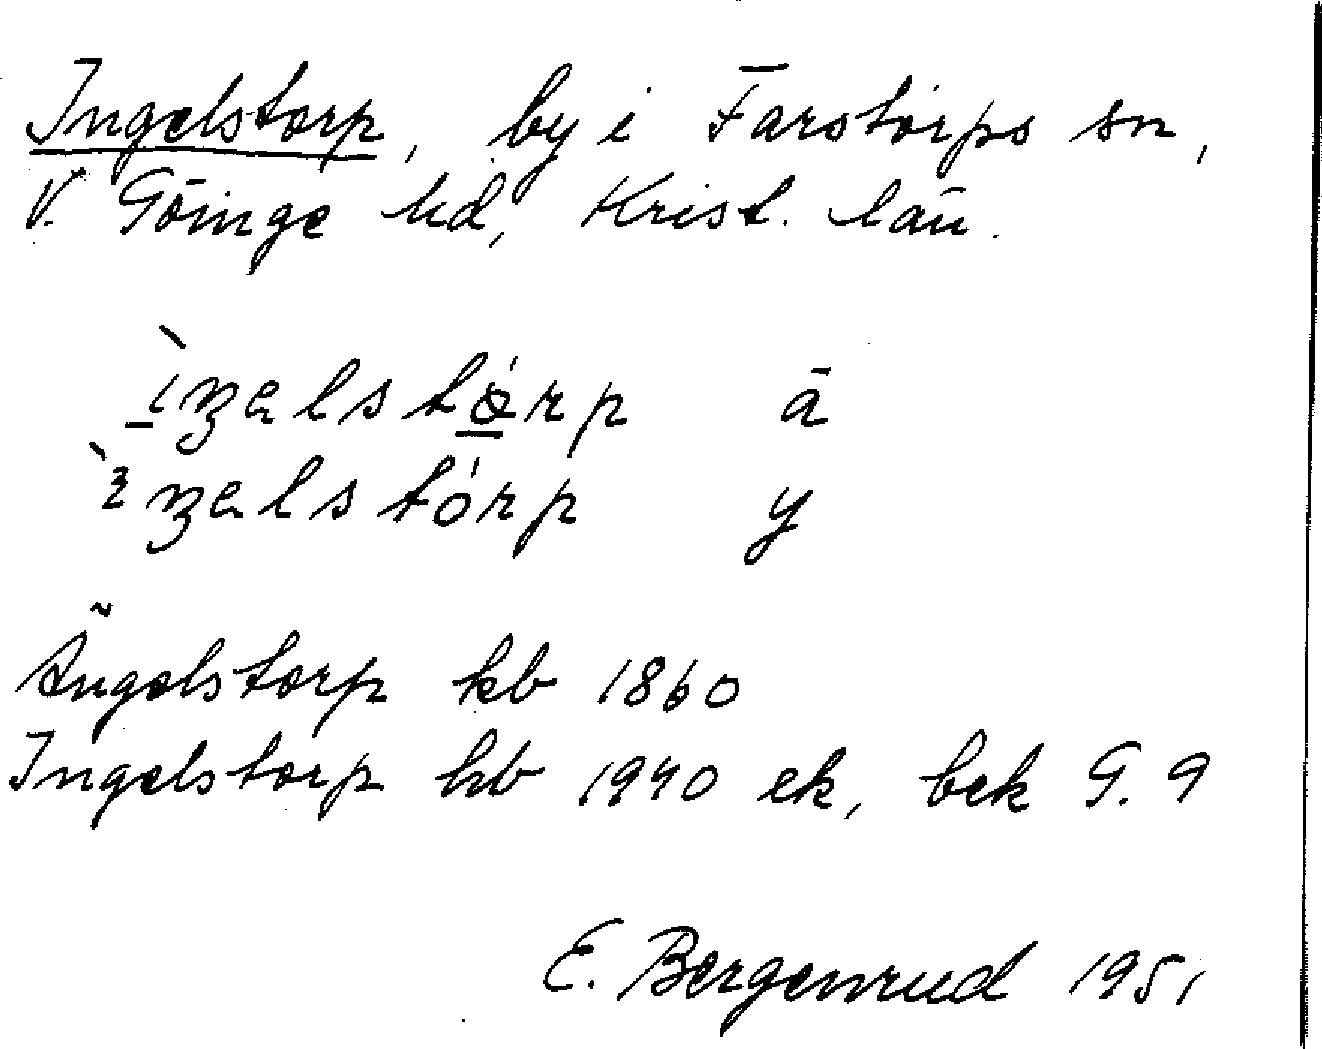 Ingelstorp, by i Farstorps sn,
V. Göinge hd, Krist. län.
ā
y
Ängelstorp kb 1860
Ingelstorp kb 1940 ek, bek G. 9
E. Bergenrud 1951